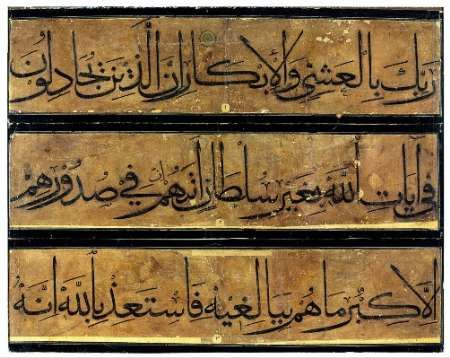 ربك بالعشي والإبكار إن الذين يجادلون
في آيات الله بغير سلطان أتهم إن في صدورهم
إلا كبر ما هم ببالغيه فاستعذ بالله انه